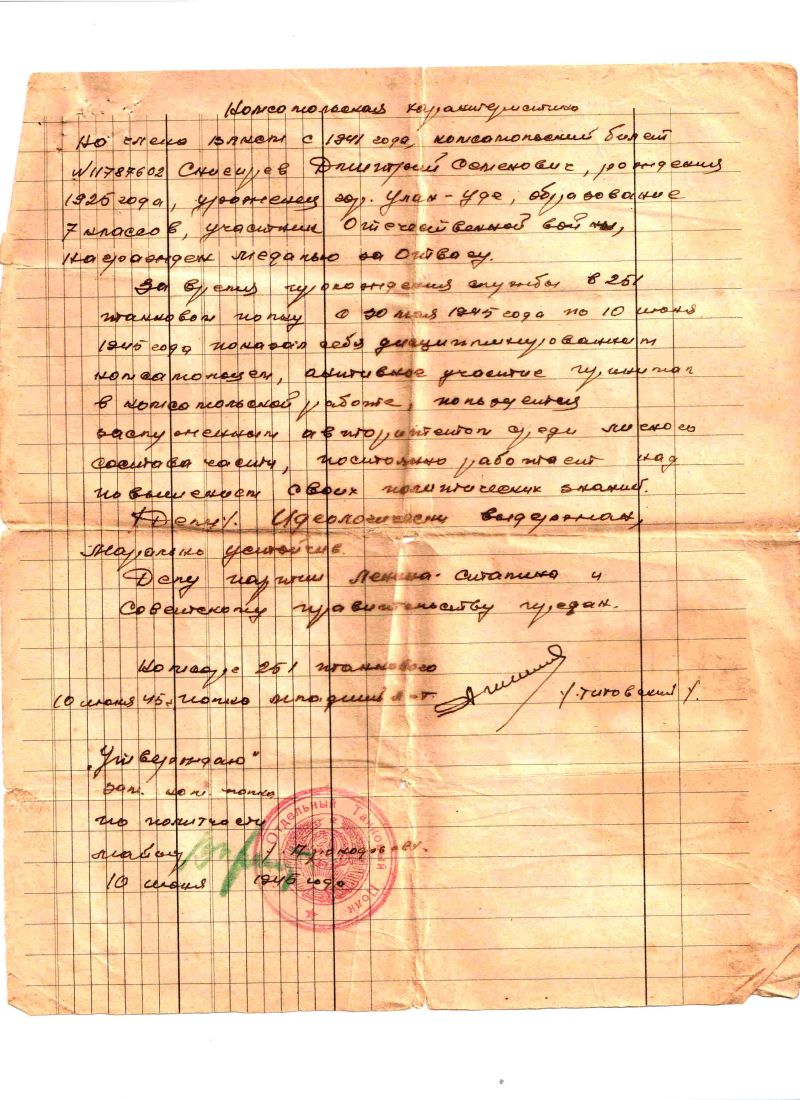 Комсомольская характеристика
На члена ВЛКСМ с 1941 года, комсомольский билет
№11787602 Снегирев Дмитрий Семенович, рождения
1925 года, уроженец гор. Улан-Удэ, образование
7 классов, участник Отечественной войны,
награжден медалью за Отвагу.
За время прохождения службы в 251
танковом полку с 30 мая 1945 года по 10 июня
1945 года показал себя дисциплинированным
комсомольцем, активное участие принимал
в комсомольской работе, пользуется
заслуженным авторитетом среди личного
состава части, постоянно работает над
повышением своих политических знаний.
Идеологически выдержан,
морально устойчив.
Делу партии Ленина-Сталина и
Советскому правительству предан.
Комсорг 251 танкового
10 июня 45г. полка младший л-т /Титовский/.
„Утверждаю"
зам. ком. полка
по политчасти
майор
10 июня 1945 года
Отдельный Танковый Полк